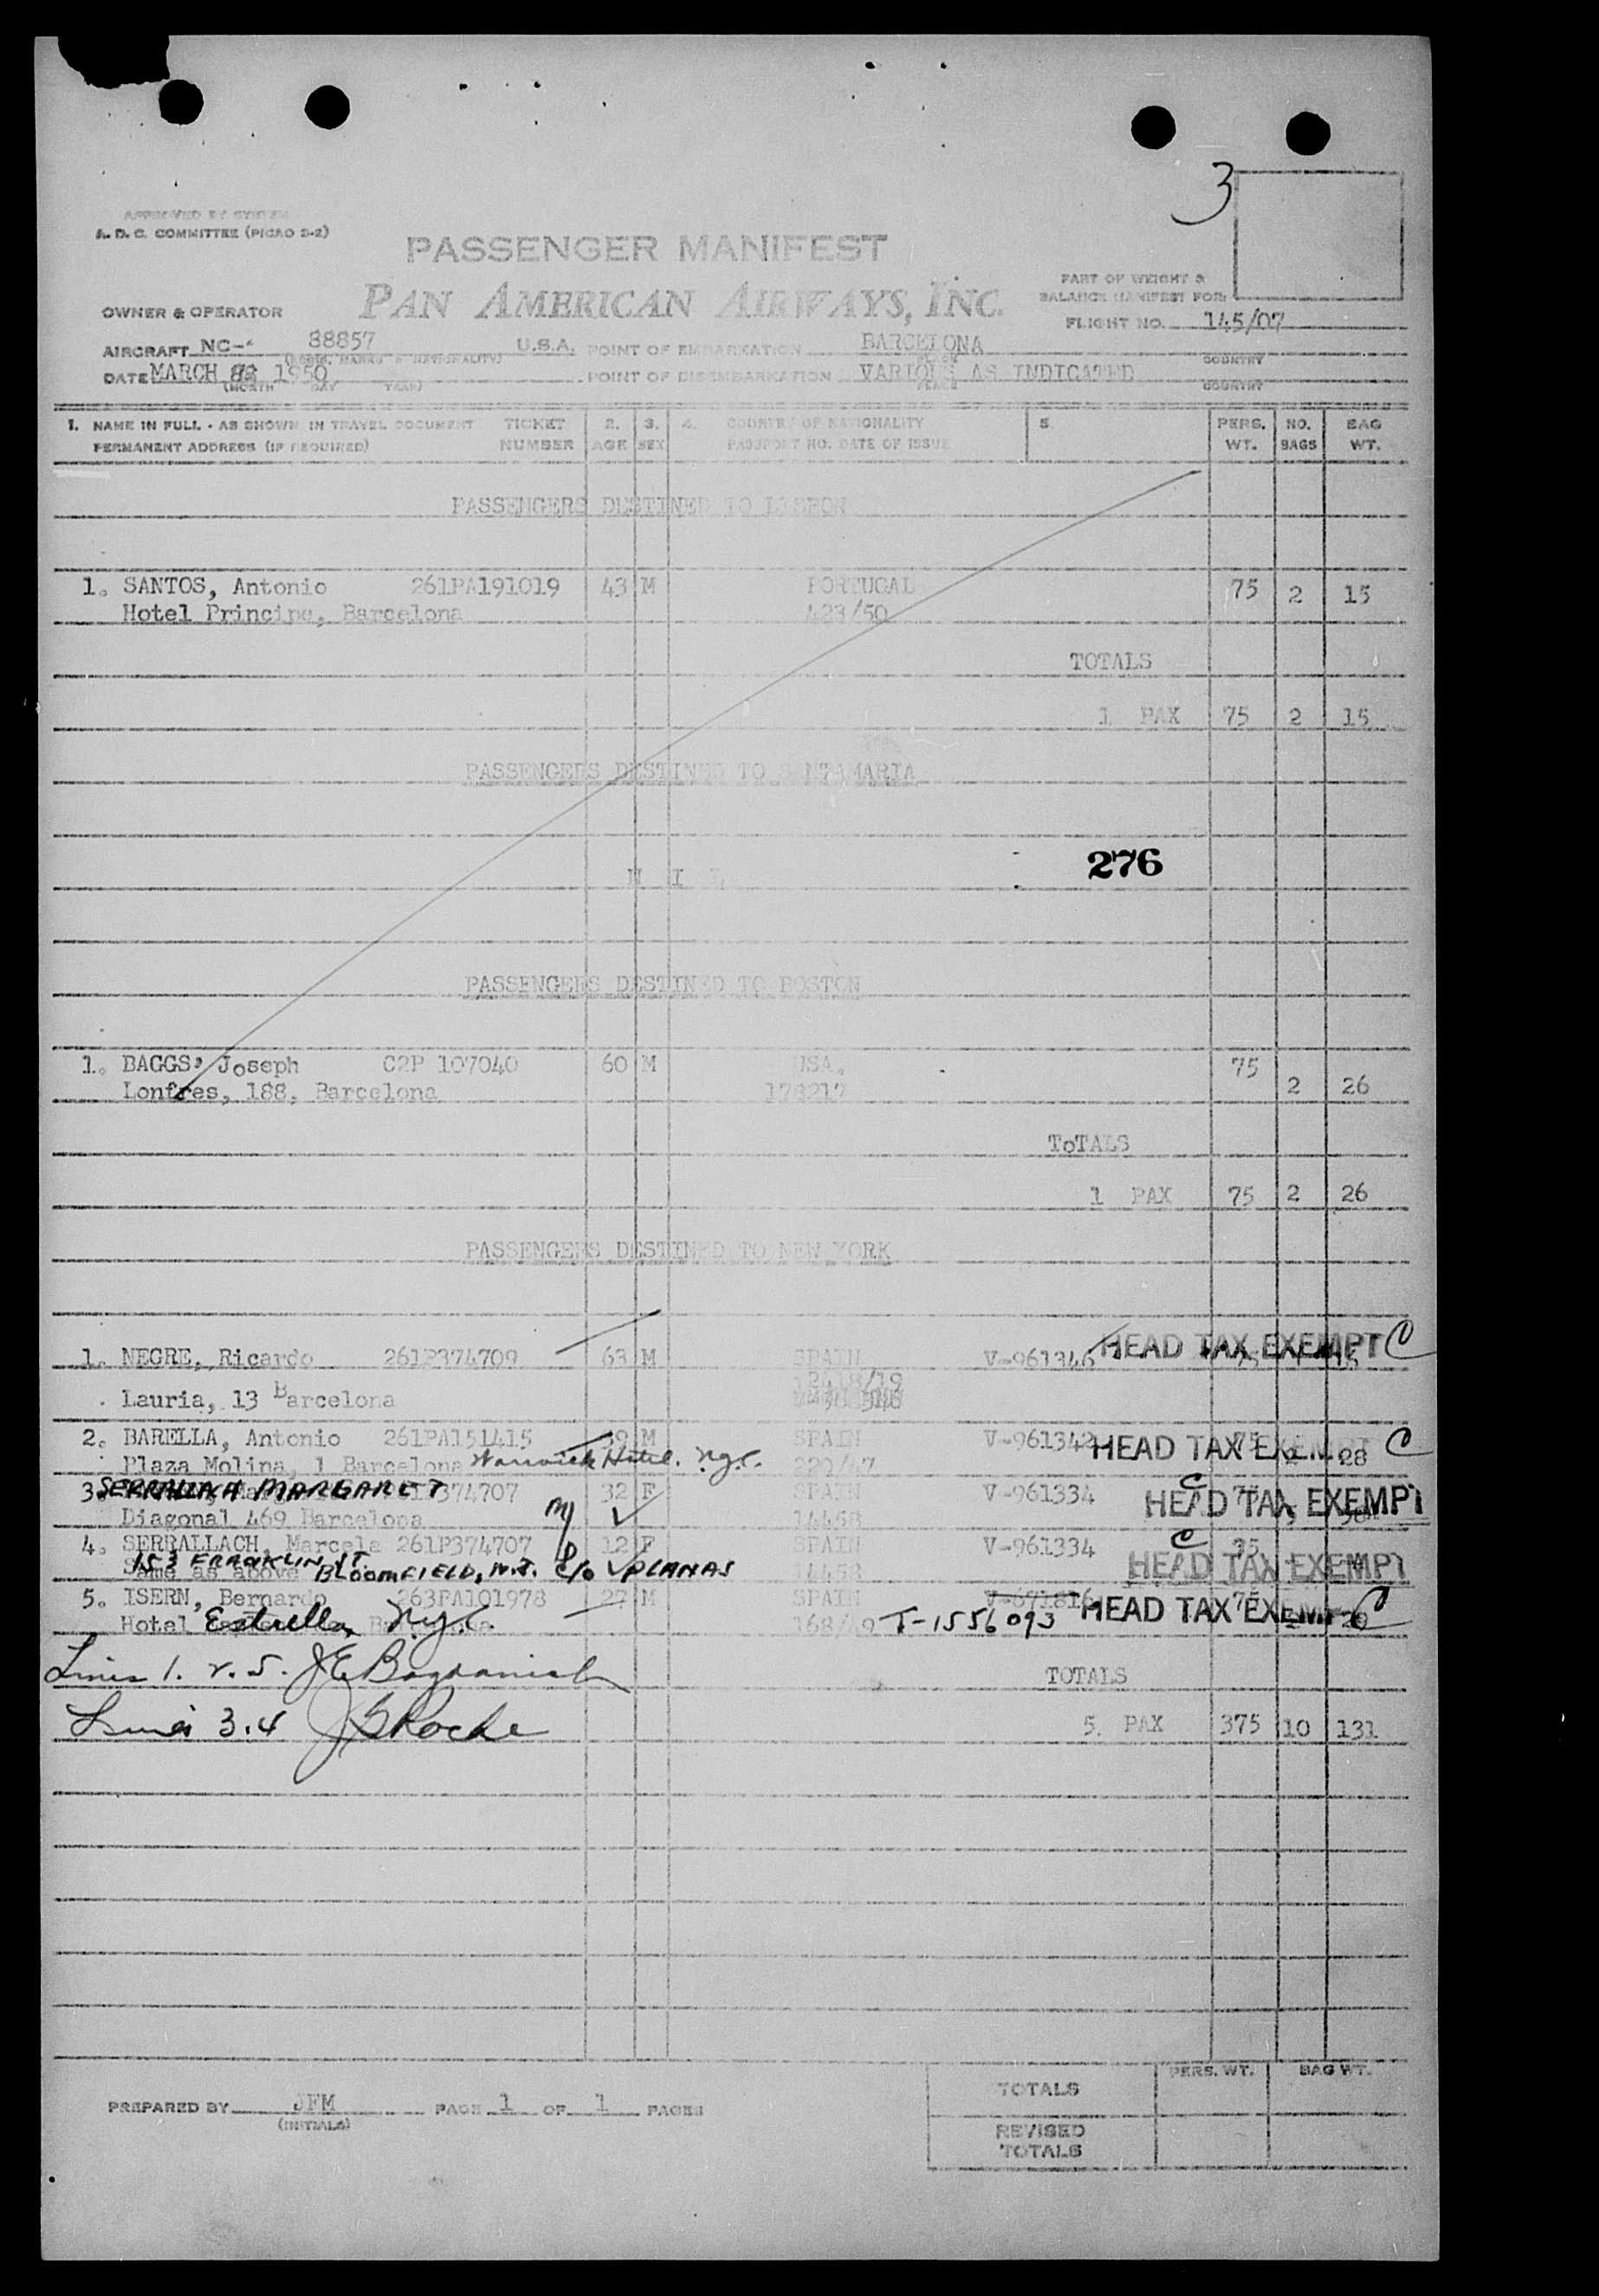 3
APPROVED BY SYSTEM
A. D. C. COMMITTEE (PICAO 2-2)
PASSENGER MANIFEST
PART OF WEIGHT &
BALANCE MANIFEST FOR:
OWNER & OPERATOR PAN AMERICAN AIRWAYS, INC.
FLIGHT NO. 145/07
AIRCRAFT NC- 88857 U.S.A. POINT OF EMBARKATION BARCELONA
COUNTRY
DATE MARCH 1950 POINT OF DISEMBARKATION VARIOUS AS INDICATED
(MONTH DAY YEAR) PLACE COUNTRY
1. NAME IN FULL - AS SHOWN IN TRAVEL DOCUMENT TICKET 2. 3. 4. COUNTRY OF NATIONALITY 5. PERS. NO. BAG
PERMANENT ADDRESS (IF REQUIRED) NUMBER AGE SEX PASSPORT NO. DATE OF ISSUE WT. BAGS WT.
PASSENGERS DESTINED TO LISBON
1. SANTOS, Antonio 261PA191019 43 M PORTUGAL 75 2 15
Hotel Principe, Barcelona 423/50
TOTALS
1 PAX 75 2 15
PASSENGERS DESTINED TO SANTAMARIA
276
N I L
PASSENGERS DESTINED TO BOSTON
1. BAGGS, Joseph C2P 107040 60 M USA. 75
Lonfres, 188, Barcelona 178217 2 26
ToTALS
1 PAX 75 2 26
PASSENGERS DESTINED TO NEW YORK
1. NEGRE, Ricardo 261P374709 63 M SPAIN V-961346 HEAD TAX EXEMPT C
Lauria, 13 Barcelona
2. BARELLA, Antonio 261PA151415 39 M SPAIN V-961342 HEAD TAX EXEM 28 C
Plaza Molina, 1 Barcelona Warwick Hotel. N.Y.C. 220/47
3. MARGARET 374707 32 F SPAIN V-961334 HEAD TAX EXEMPT C
Diagonal 469 Barcelona 14458
4. SERRALLACH, Marcela 261P374707 12 F SPAIN V-961334 C HEAD TAX EXEMPT
Same as above 153 FRANKLIN ST. BLOOMFIELD, N.J. c/o PLANAS 14458
5. ISERN, Bernardo 263PA101978 27 M SPAIN V-671816 HEAD TAX EXEMPT C
Hotel Estrella, N.y.C. 168/49 T-1556093
Lines 1. 2. 5. TOTALS
Lines 3.4 5. PAX 375 10 131
PERS. WT. BAG WT.
TOTALS
PREPARED BY JFM PAGE 1 OF 1 PAGES
(INITIALS)
REVISED
TOTALS